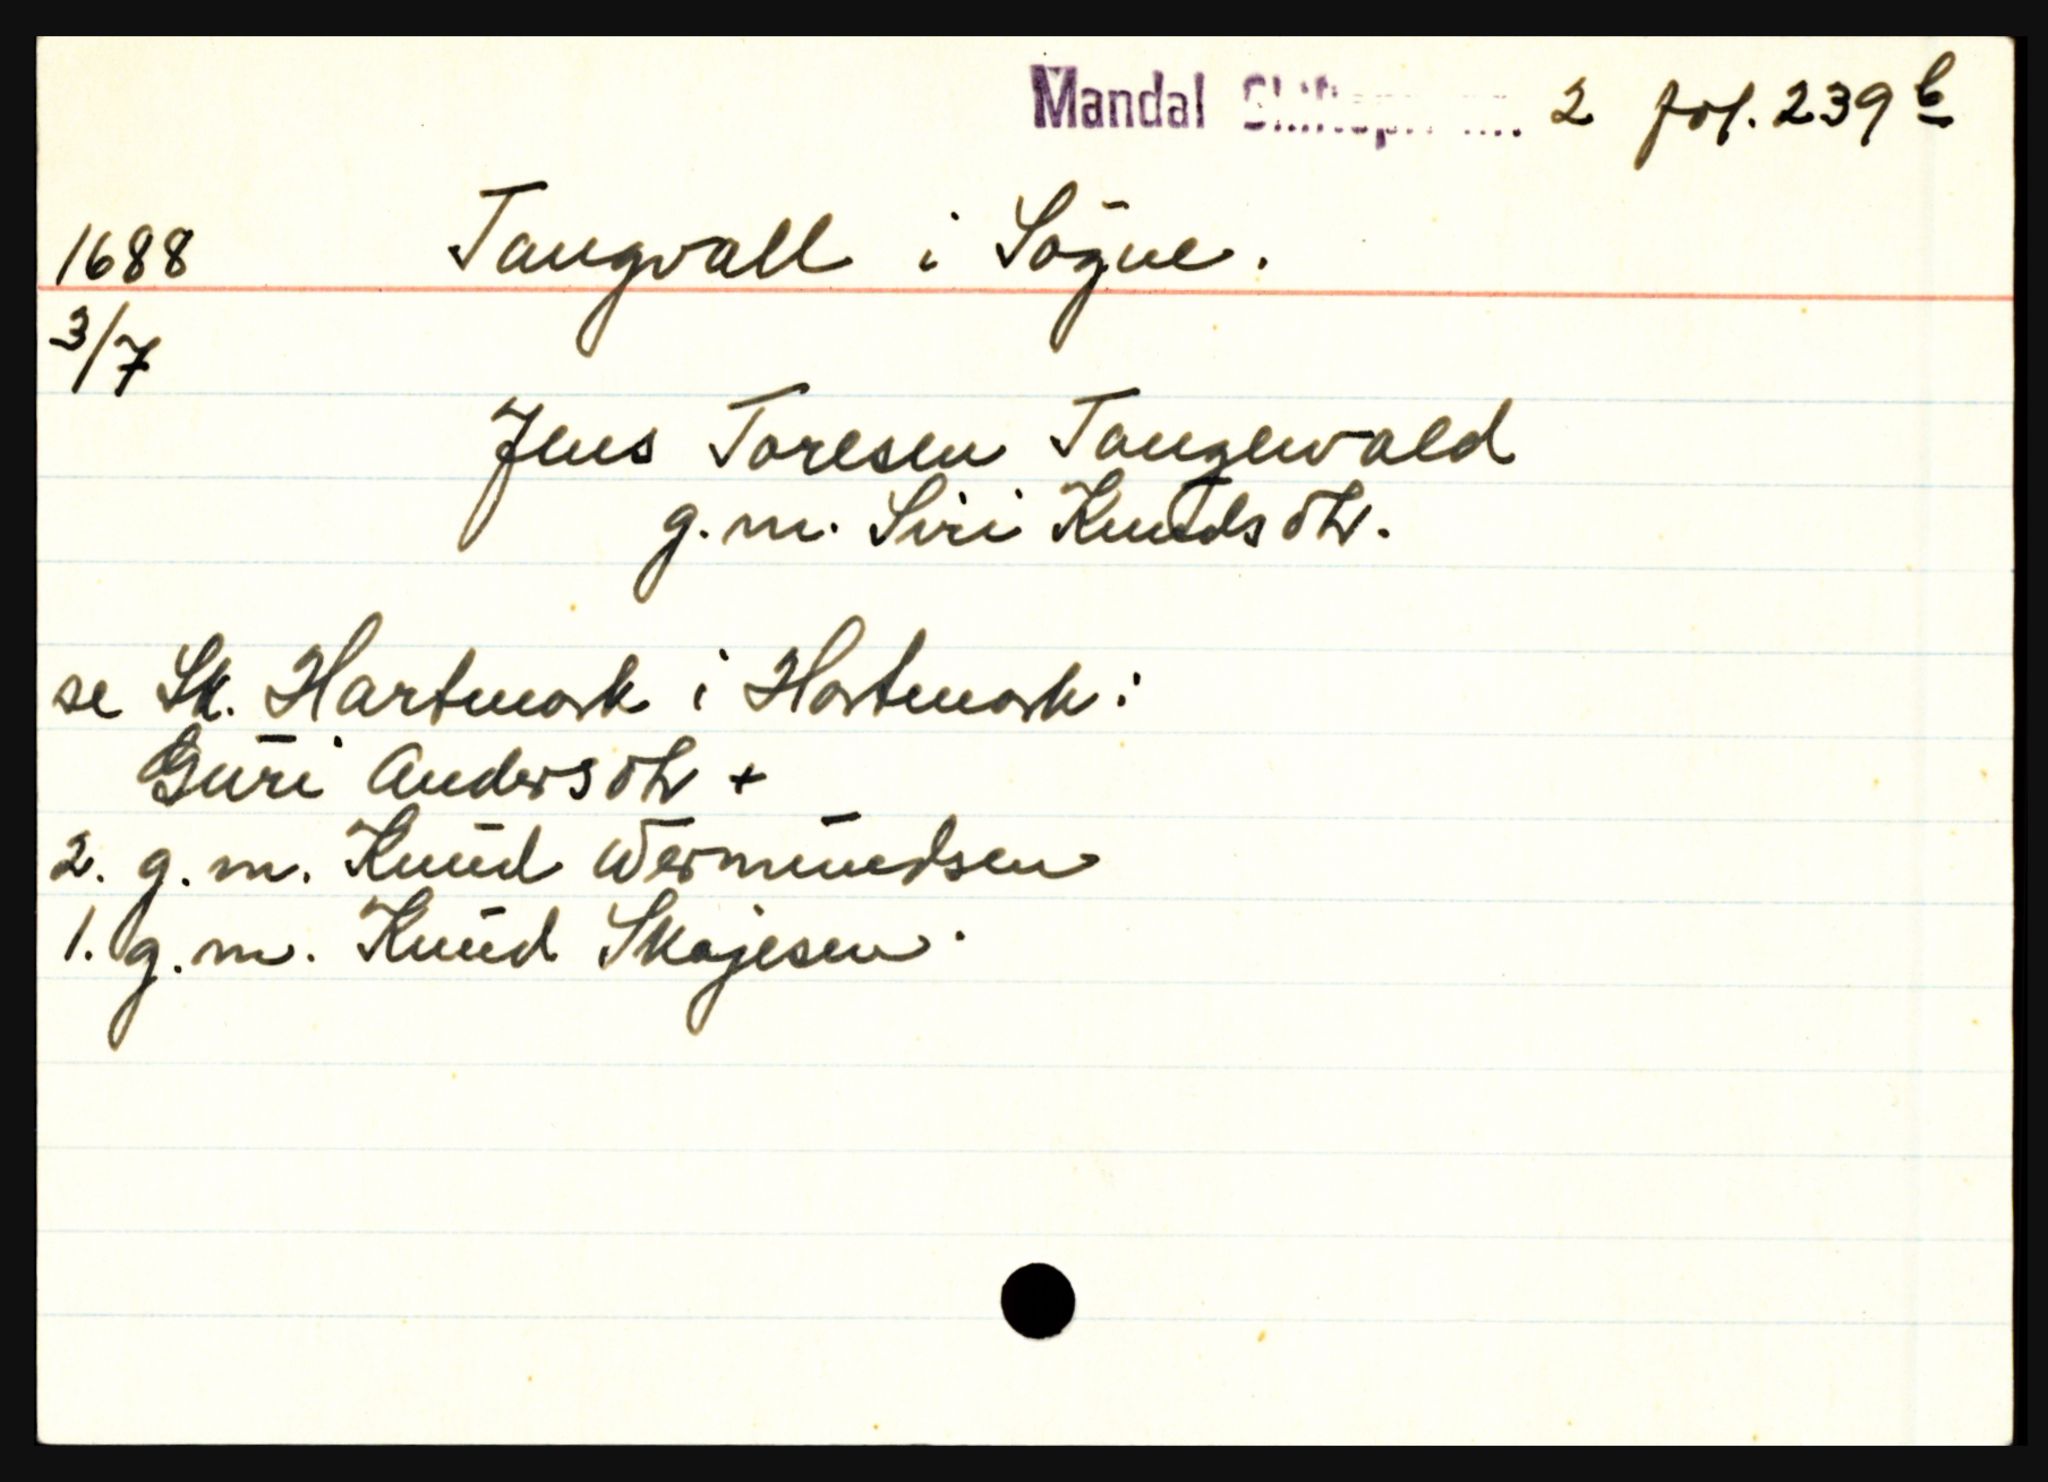 Mandal 2 fol. 239 b
1688 Tangvall i Søgne.
3/7
Jens Toresen Tangewald
g.m. Siri Knudsdtr.
se Sk. Hartmark i Hartmark:
Guri Andersdtr +
2. g.m. Knud Wermundsen
1. g.m. Knud Skajesen.